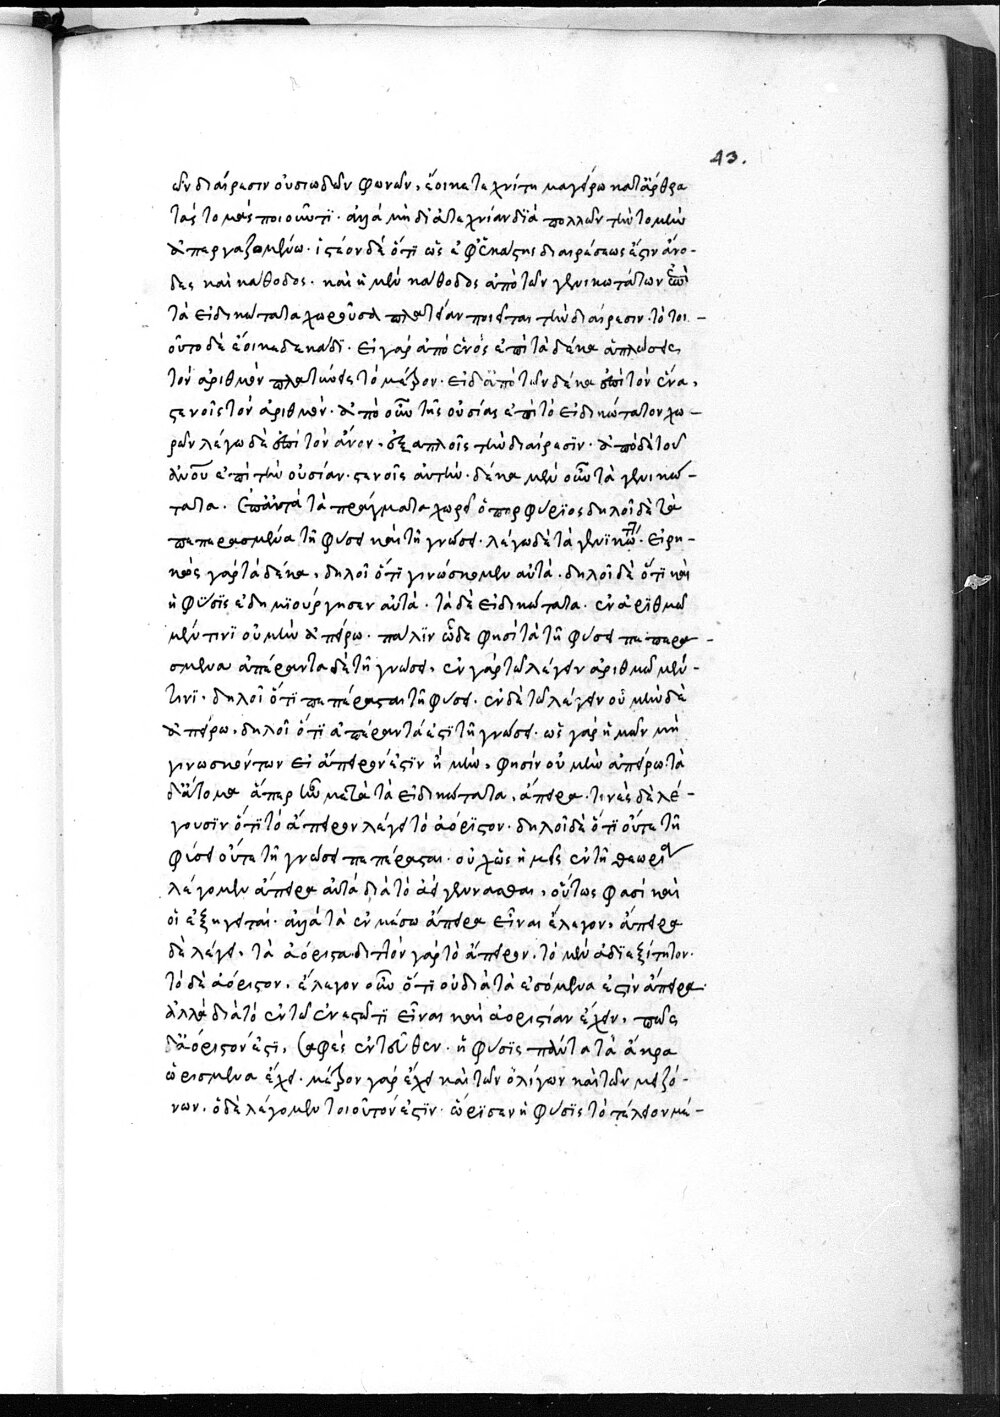 43.
ῶν διαίρεσιν οὐσιωδῶν φωνῶν, ἔοικε τεχνίτη μαγείρω κατ' ἄρθρα
τὰς τομὰς ποιοῦντι. ἀλλὰ μὴ δι' ἀτεχνίαν διὰ πολλῶν τὴν τομὴν
ἀπεργαζομένω. ἰστέον δὲ ὅτι ὡς ἐφ' ἑκάστης διαιρέσεως ἔστιν ἄνο-
δος καὶ κάθοδος. καὶ ἡ μὲν κάθοδος ἀπὸ τῶν γενικωτάτων ἐπὶ
τὰ εἰδικώτατα χωροῦσα πλατεῖαν ποιεῖται τὴν διαίρεσιν. τὸ τοι-
οῦτο δὲ ἔοικε δεκάδι. εἰ γὰρ ἀπὸ ἑνὸς ἐπὶ τὰ δέκα ἁπλώσεις
τὸν ἀριθμὸν πλατύνεις τὸ μεῖζον. εἰ δ' ἀπὸ τῶν δέκα ἐπὶ τὸν ἕνα,
στενοῖς τὸν ἀριθμόν. ἀπὸ οὖν τῆς οὐσίας ἐπὶ τὸ εἰδικώτατον χω-
ρῶν λέγω δὲ ἐπὶ τὸν ἄνον, ἐξαπλοῖς τὴν διαίρεσιν. ἀπὸ δὲ τοῦ
ἀνου ἐπὶ τὴν οὐσίαν. στενοῖς αὐτήν. δέκα μὲν οὖν τὰ γενικώ-
τατα. τὰ πράγματα χωρεῖ ὁ πορφύριος δηλοῖ δὲ τὰ
πεπερασμένα τῆ φύσει καὶ τῆ γνώσει. λέγω δὲ τὰ γενικώτ. εἰρη-
κὼς γὰρ τὰ δέκα, δηλοῖ ὅτι γινώσκομεν αὐτά. δηλοῖ δὲ ὅτι καὶ
ἡ φύσις ἐδημιούργησεν αὐτά. τὰ δὲ εἰδικώτατα. ἐν ἀριθμῶ
μέν τινι οὐ μὴν ἀπείρω. πάλιν ὧδε φησὶ τὰ τῆ φύσει πεπερα-
σμένα ἀπέραντα δὲ τῆ γνώσει, ἐν γὰρ τῶ λέγειν ἀριθμῶ μέν
τινι. δηλοῖ ὅτι πεπέρασται τῆ φύσει. ἐν δὲ τῶ λέγειν οὐ μὴν δὲ
ἀπείρω. δηλοῖ ὅτι ἀπέραντά ἐστι τῆ γνώσει. ὡς γὰρ ἡμῶν μὴ
γινωσκόντων εἰ ἄπειρόν ἐστιν ἢ μὴν, φησὶν οὐ μὴν ἀπείρω. τὰ
δ' ἄτομα ἅπερ ἦν μετὰ τὰ εἰδικώτατα, ἄπειρα. τινὲς δὲ λέ-
γουσιν ὅτι τὸ ἄπειρον λέγει τὸ ἀόριστον. δηλοῖ δὲ ὅτι οὔτε τῆ
φύσει οὔτε τῆ γνώσει πεπέρασται. οὐχ ὡς ἡμεῖς ἐν τῆ θεωρίᾳ
λέγομεν ἄπειρα αὐτὰ διὰ τὸ ἀεὶ γενᾶσθαι, οὕτως φασὶ καὶ
οἱ ἐξηγηταί. ἀλλὰ τὰ ἐν μέσω ἄπειρα εἶναι ἔλεγον, ἄπειρα
δὲ λέγει, τὰ ἀόριστα. διττὸν γὰρ τὸ ἄπειρον, τὸ μὲν ἀδιεξίτητον.
τὸ δὲ ἀόριστον, ἔλεγον οὖν ὅτι οὐ διὰ τὰ ἐσόμενα ἐστὶν ἄπειρα.
ἀλλὰ διὰ τὸ ἐν τῶ ἐνεστῶτι εἶναι καὶ ἀοριστίαν ἔχειν, πῶς
δ' ἀόριστόν ἐστι, σαφὲς ἐντεῦθεν. ἡ φύσις πάντα τὰ ἄκρα
ὡρισμένα ἔχει. μεῖζον γὰρ ἔχει καὶ τῶν ὀλίγων καὶ τῶν μειζό-
νων. ὁ δὲ λέγομεν τοιοῦτόν ἐστιν. ὥρισεν ἡ φύσις τὸ τέλειον μέ-